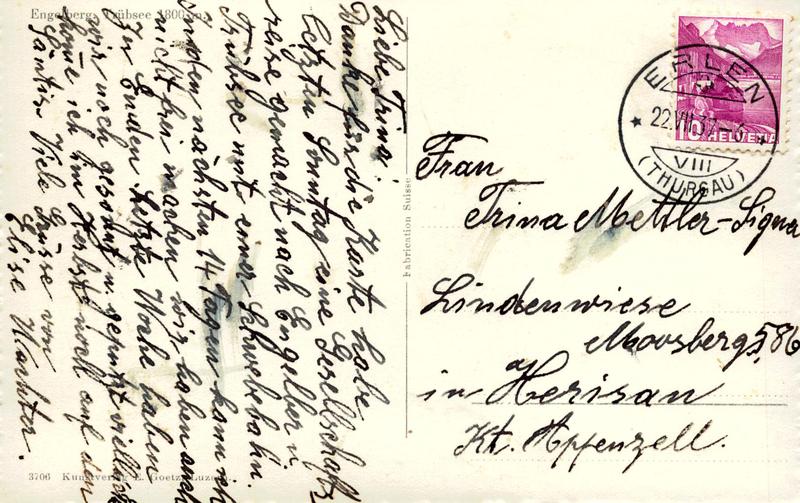 Engelberg, Trübsee 1800 m.
Liebe Trina!
Danke für die Karte habe
letzten Sonntag eine Gesellschafts
reise gemacht nach Engelber u.
Trübsee mit einer Schwebebahn.
In den nächsten 14 Tagen kann ich
nicht frei machen wir haben
In Enden letzte Woche haben
wir noch gesonnt u. geputzt
komme ich im Herbst noch auf den
Säntis. Viele Grüsse von
Elise Wachter.
3706 Kunstverlag E. Goetz, Luzern
Fabrication Suisse
ERLEN
22.VII.37
VIII
(THURGAU)
10 HELVETIA
Frau
Trina Mettler-Signer
Lindenwiese
Moosberg 586
in Herisau
Kt. Appenzell.